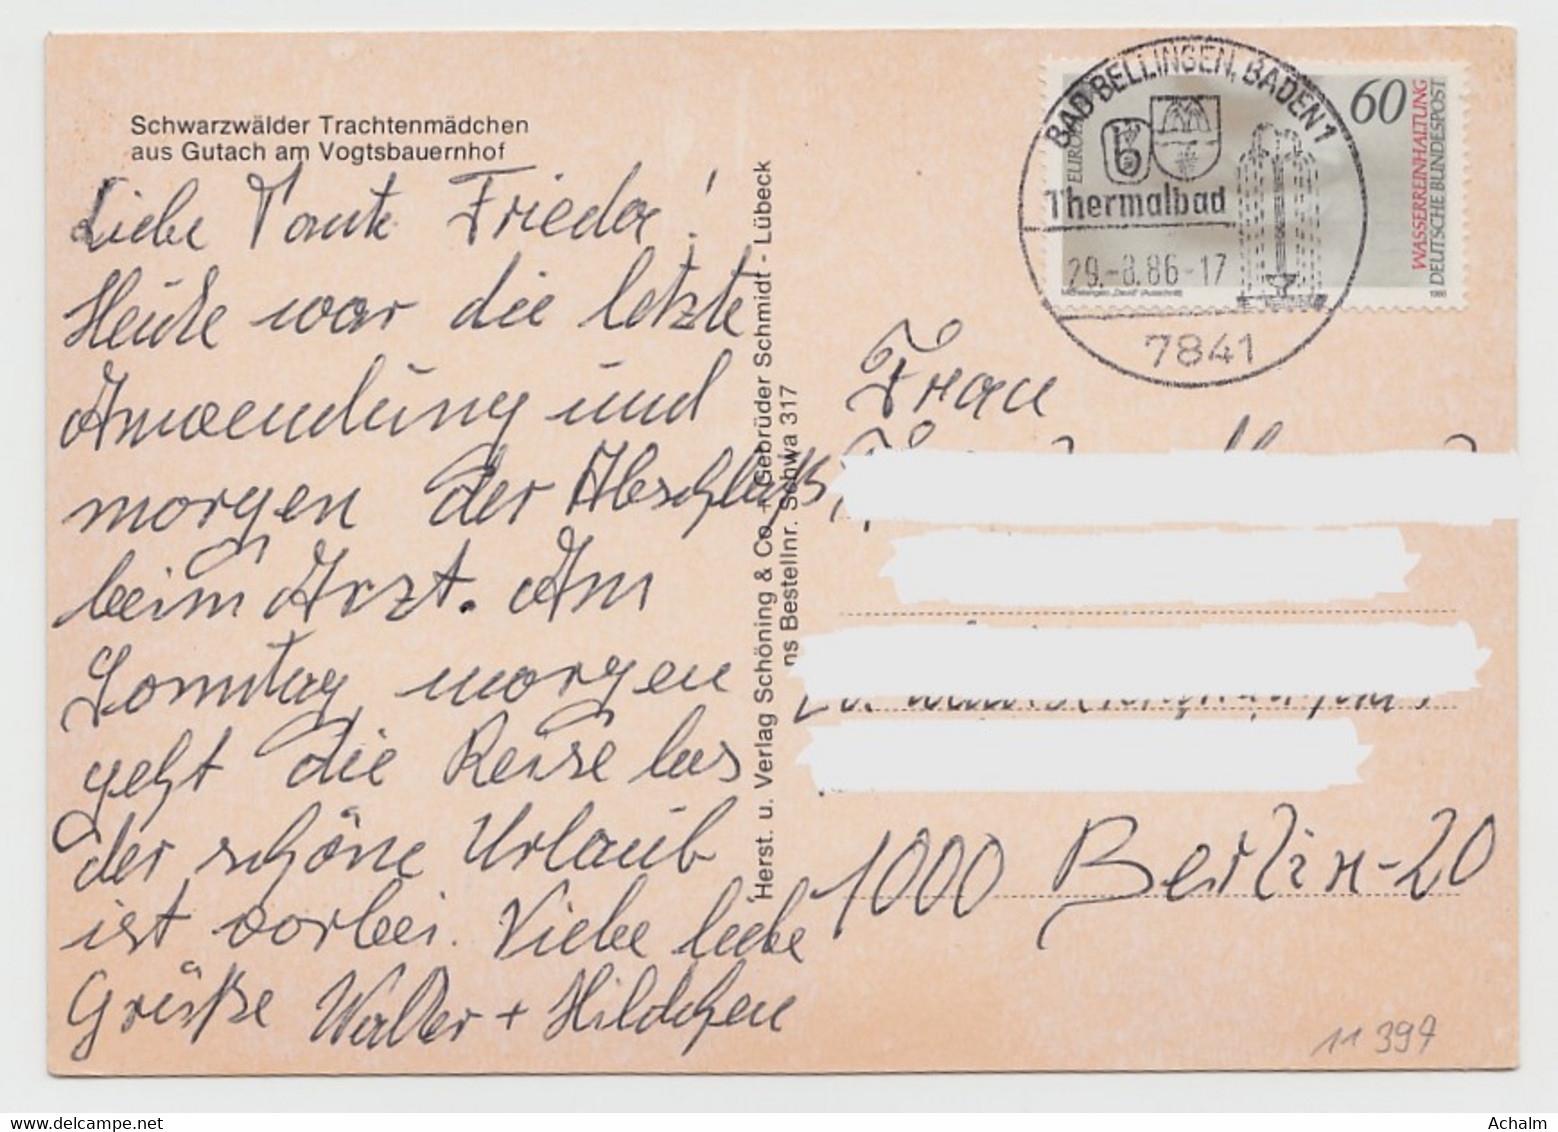 Schwarzwälder Trachtenmädchen
aus Gutach am Vogtsbauernhof
Liebe Tante Frieda!
Heute war die letzte
Anwendung und
morgen der Abschluß
beim Arzt. Am
Sonntag morgen
geht die Reise los
der schöne Urlaub
ist vorbei. Viele liebe
Grüße Walter + Hildchen
Herst. u. Verlag Schöning & Co + Gebrüder Schmidt - Lübeck
ns Bestellnr. Schwa 317
BAD BELLINGEN, BADEN 1
b
Thermalbad
29.-8.86-17
7841
EUROPA
60
WASSERREINHALTUNG
DEUTSCHE BUNDESPOST
Michelangelo, „David" (Ausschnitt)
1986
Frau
1000 Berlin-20
11 397
Achalm